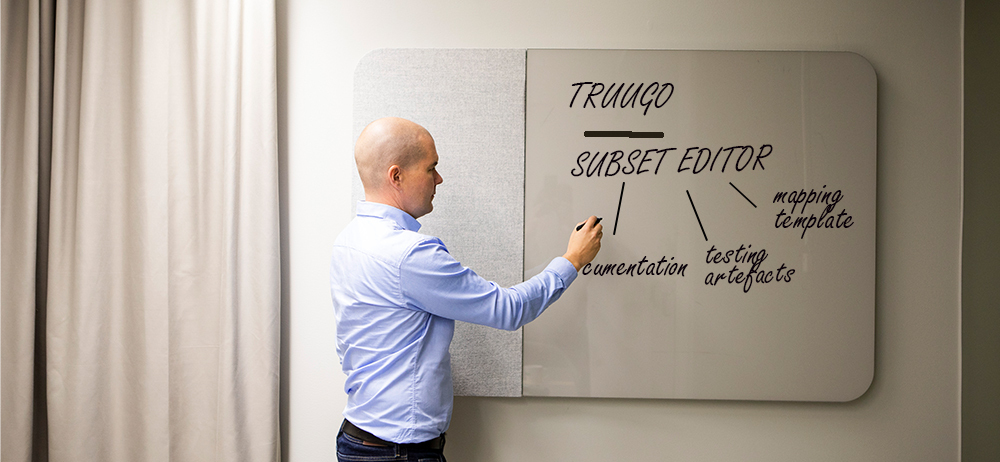 TRUUGO
SUBSET EDITOR
mapping
template
testing
artefacts
cumentation